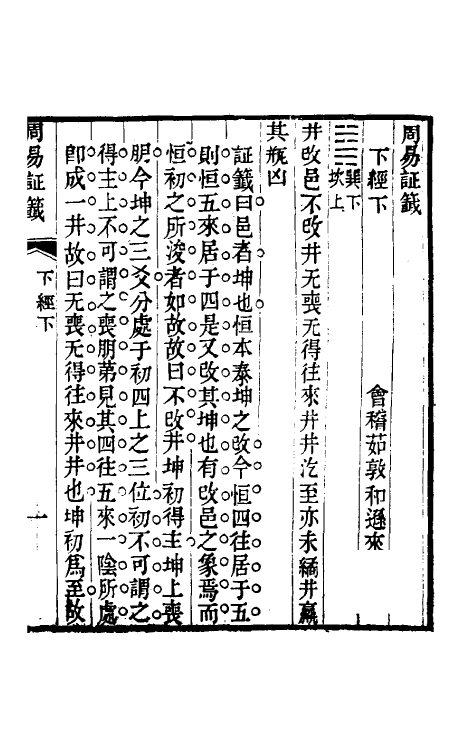 周易証籤
下經下
會稽茹敦和遜來
䷯
巽下
坎上
井改邑不改井无喪无得往來井井汔至亦未繘井羸
其瓶凶
証籤曰邑者坤也恒本泰坤之改今恒四往居于五
則恒五來居于四是又改其坤也有改邑之象焉而
恒初之所浚者如故故曰不改井坤初得主坤上喪
朋今坤之三爻分處于初四上之三位初不可謂之
得主上不可謂之喪朋第見其四往五來一陰所處
卽成一井故曰无喪无得往來井井也坤初爲至故
周易証籤
下經下
一